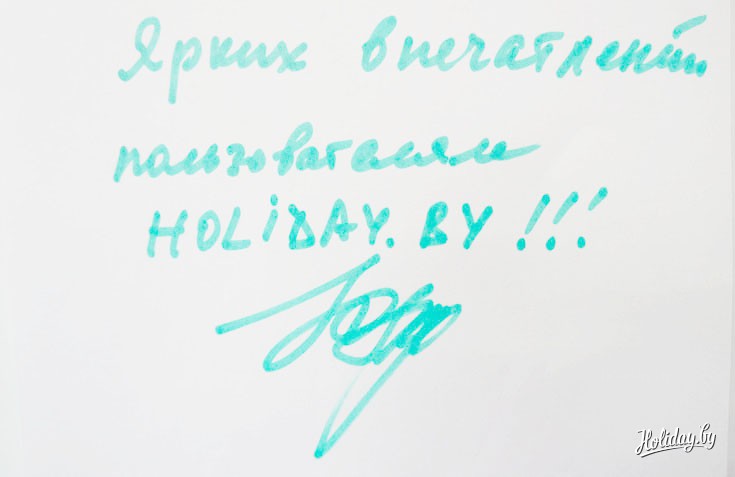 Ярких впечатлений
пользователям
HOLiDAY.BY !!!
Holiday.by